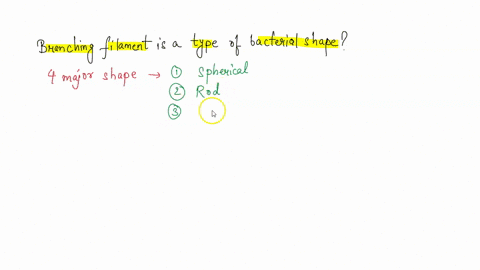 Branching filament is a type of bacterial shape?
4 major shape → ① Spherical
② Rod
③